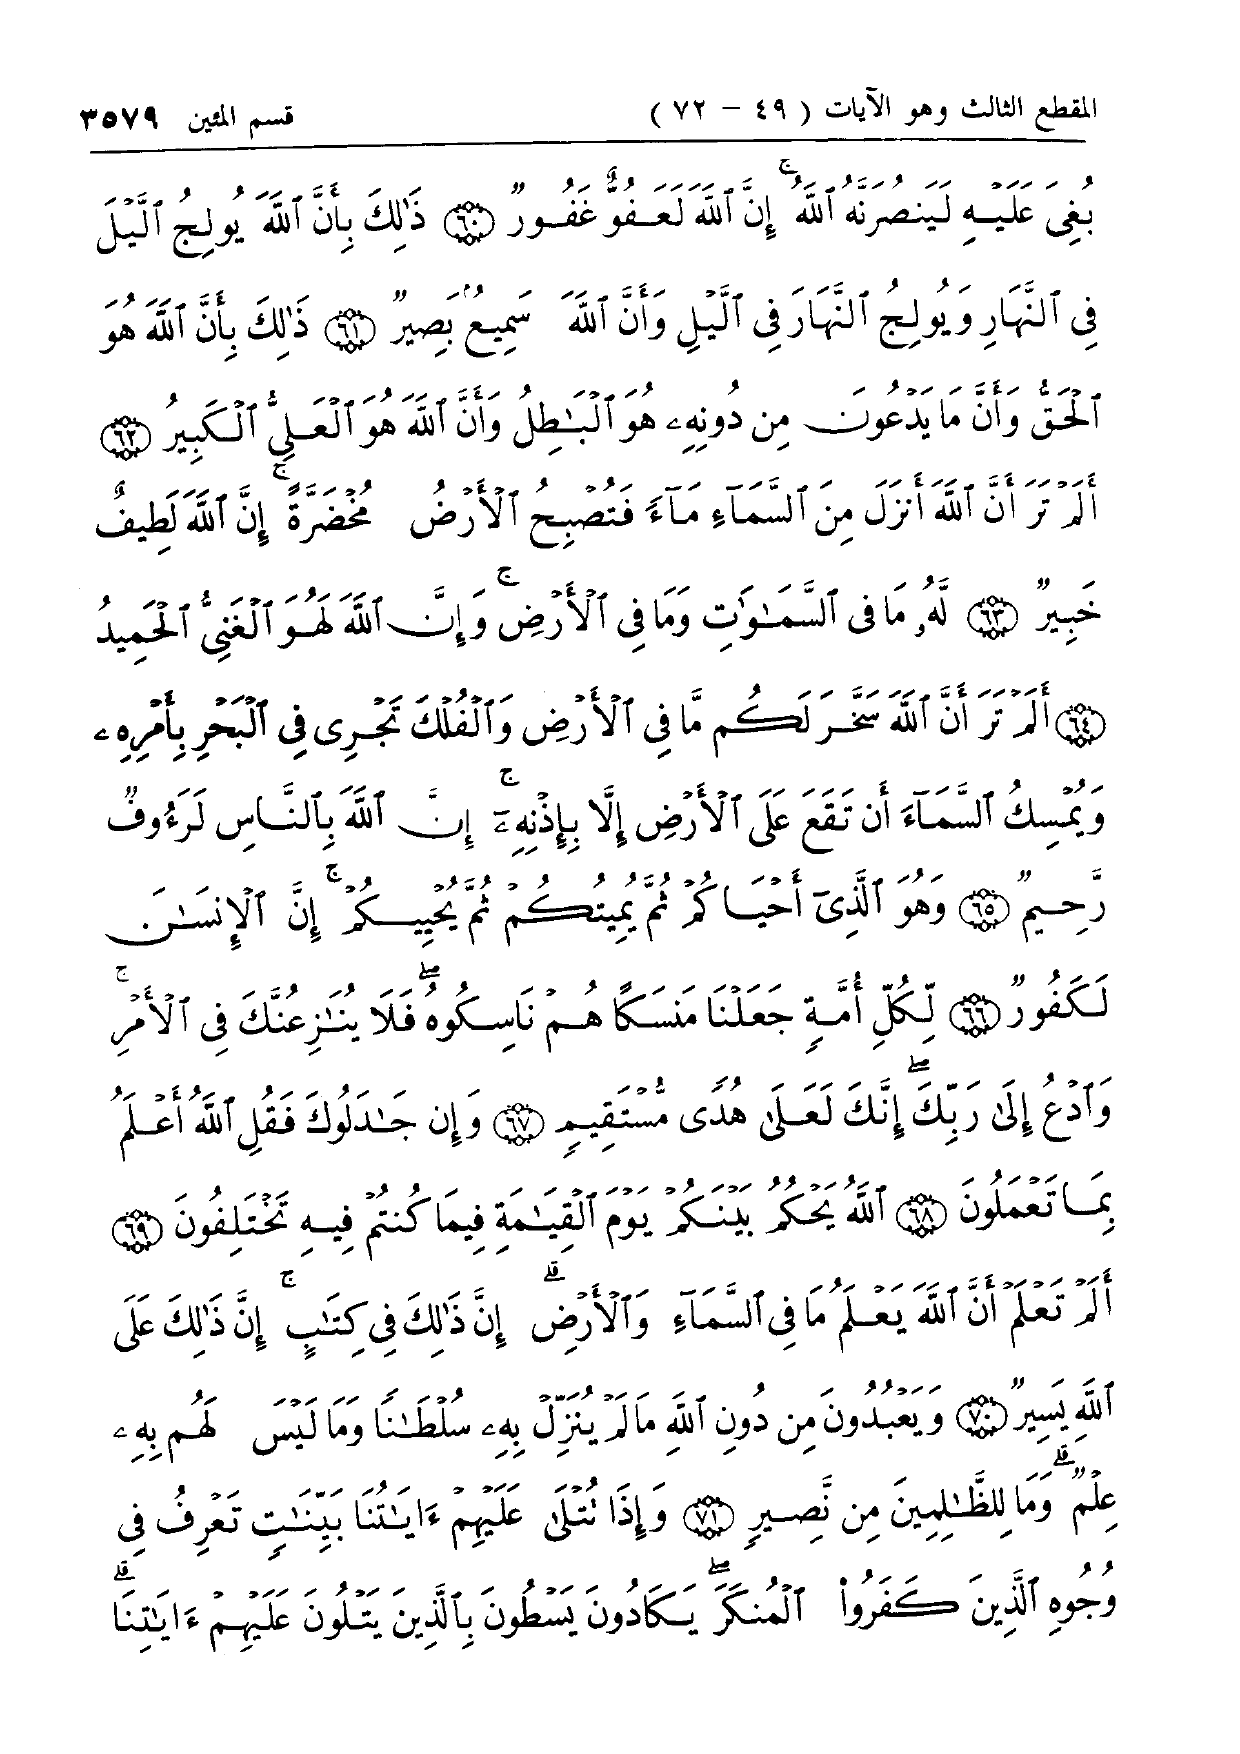 المقطع الثالث وهو الآيات ( ٤٩ - ٧٢ ) قسم المئين ٣٥٧٩
بُغِىَ عَلَيْهِ لَيَنصُرَنَّهُ ٱللَّهُ ۚ إِنَّ ٱللَّهَ لَعَفُوٌّ غَفُورٌ ﴿٦٠﴾ ذَٰلِكَ بِأَنَّ ٱللَّهَ يُولِجُ ٱلَّيْلَ
فِى ٱلنَّهَارِ وَيُولِجُ ٱلنَّهَارَ فِى ٱلَّيْلِ وَأَنَّ ٱللَّهَ سَمِيعٌۢ بَصِيرٌ ﴿٦١﴾ ذَٰلِكَ بِأَنَّ ٱللَّهَ هُوَ
ٱلْحَقُّ وَأَنَّ مَا يَدْعُونَ مِن دُونِهِۦ هُوَ ٱلْبَٰطِلُ وَأَنَّ ٱللَّهَ هُوَ ٱلْعَلِىُّ ٱلْكَبِيرُ ﴿٦٢﴾
أَلَمْ تَرَ أَنَّ ٱللَّهَ أَنزَلَ مِنَ ٱلسَّمَآءِ مَآءً فَتُصْبِحُ ٱلْأَرْضُ مُخْضَرَّةً ۚ إِنَّ ٱللَّهَ لَطِيفٌ
خَبِيرٌ ﴿٦٣﴾ لَّهُۥ مَا فِى ٱلسَّمَٰوَٰتِ وَمَا فِى ٱلْأَرْضِ ۚ وَإِنَّ ٱللَّهَ لَهُوَ ٱلْغَنِىُّ ٱلْحَمِيدُ
﴿٦٤﴾ أَلَمْ تَرَ أَنَّ ٱللَّهَ سَخَّرَ لَكُم مَّا فِى ٱلْأَرْضِ وَٱلْفُلْكَ تَجْرِى فِى ٱلْبَحْرِ بِأَمْرِهِۦ
وَيُمْسِكُ ٱلسَّمَآءَ أَن تَقَعَ عَلَى ٱلْأَرْضِ إِلَّا بِإِذْنِهِۦٓ ۚ إِنَّ ٱللَّهَ بِٱلنَّاسِ لَرَءُوفٌ
رَّحِيمٌ ﴿٦٥﴾ وَهُوَ ٱلَّذِىٓ أَحْيَاكُمْ ثُمَّ يُمِيتُكُمْ ثُمَّ يُحْيِيكُمْ ۚ إِنَّ ٱلْإِنسَٰنَ
لَكَفُورٌ ﴿٦٦﴾ لِّكُلِّ أُمَّةٍ جَعَلْنَا مَنسَكًا هُمْ نَاسِكُوهُ ۖ فَلَا يُنَٰزِعُنَّكَ فِى ٱلْأَمْرِ ۚ
وَٱدْعُ إِلَىٰ رَبِّكَ ۖ إِنَّكَ لَعَلَىٰ هُدًى مُّسْتَقِيمٍ ﴿٦٧﴾ وَإِن جَٰدَلُوكَ فَقُلِ ٱللَّهُ أَعْلَمُ
بِمَا تَعْمَلُونَ ﴿٦٨﴾ ٱللَّهُ يَحْكُمُ بَيْنَكُمْ يَوْمَ ٱلْقِيَٰمَةِ فِيمَا كُنتُمْ فِيهِ تَخْتَلِفُونَ ﴿٦٩﴾
أَلَمْ تَعْلَمْ أَنَّ ٱللَّهَ يَعْلَمُ مَا فِى ٱلسَّمَآءِ وَٱلْأَرْضِ ۗ إِنَّ ذَٰلِكَ فِى كِتَٰبٍ ۚ إِنَّ ذَٰلِكَ عَلَى
ٱللَّهِ يَسِيرٌ ﴿٧٠﴾ وَيَعْبُدُونَ مِن دُونِ ٱللَّهِ مَا لَمْ يُنَزِّلْ بِهِۦ سُلْطَٰنًا وَمَا لَيْسَ لَهُم بِهِۦ
عِلْمٌ ۗ وَمَا لِلظَّٰلِمِينَ مِن نَّصِيرٍ ﴿٧١﴾ وَإِذَا تُتْلَىٰ عَلَيْهِمْ ءَايَٰتُنَا بَيِّنَٰتٍ تَعْرِفُ فِى
وُجُوهِ ٱلَّذِينَ كَفَرُوا۟ ٱلْمُنكَرَ ۖ يَكَادُونَ يَسْطُونَ بِٱلَّذِينَ يَتْلُونَ عَلَيْهِمْ ءَايَٰتِنَا ۗ